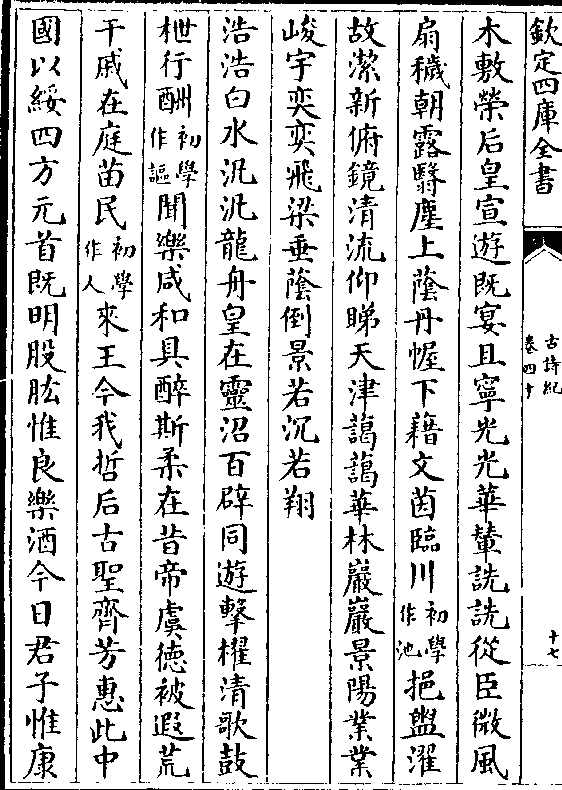 欽定四庫全書
古詩紀
卷四十
十七
木敷榮后皇宣遊既宴且寧光光華輦詵詵從臣微風
扇穢朝露翳塵上蔭丹幄下藉文茵臨川初學作池挹盥濯
故潔新俯鏡清流仰睇天津藹藹華林巖巖景陽業業
峻宇奕奕飛梁垂蔭倒景若沉若翔
浩浩白水汎汎龍舟皇在靈沼百辟同遊擊櫂清歌鼓
枻行酬初學作謳聞樂咸和具醉斯柔在昔帝虞德被遐荒
干戚在庭苗民初學作人來王今我哲后古聖齊芳惠此中
國以綏四方元首既明股肱惟良樂酒今日君子惟康